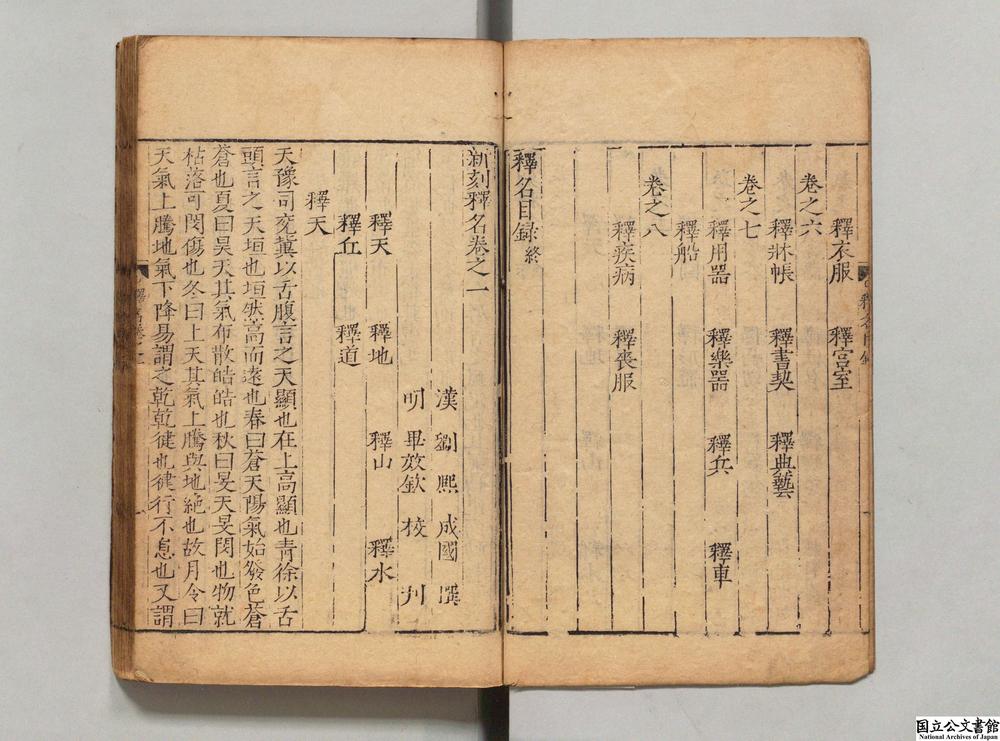 釋衣服 釋宮室
卷之六
釋牀帳 釋書契 釋典藝
卷之七
釋用器 釋樂器 釋兵 釋車
釋船
卷之八
釋疾病 釋喪服
釋名目録終
新刻釋名卷之一
漢 劉熙成國 撰
明 畢效欽 校刋
釋天 釋地 釋山 釋水
釋丘 釋道
釋天
天豫司兗冀以舌腹言之天顯也在上高顯也青徐以舌
頭言之天垣也垣然高而遠也春曰蒼天陽氣始發色蒼
蒼也夏曰昊天其氣布散皓皓也秋曰旻天旻閔也物就
枯落可閔傷也冬曰上天其氣上騰與地絶也故月令曰
天氣上騰地氣下降易謂之乾乾健也健行不息也又謂
国立公文書館
National Archives of Japan